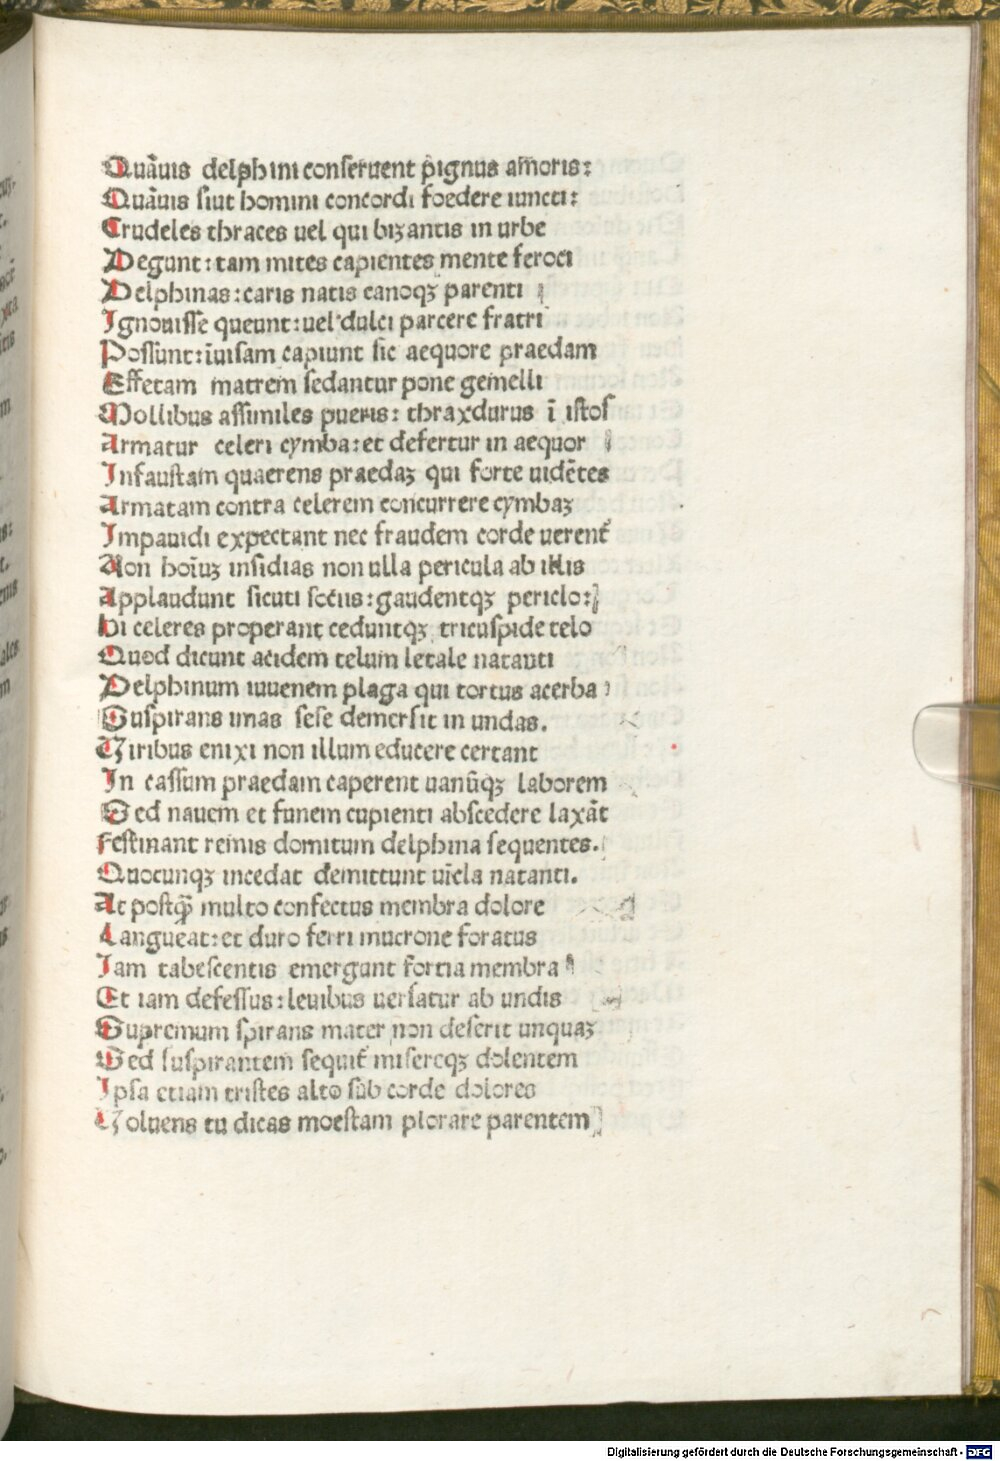 Quãuis delphini conseruent pignus amoris:
Quãuis siut homini concordi foedere iuncti:
Crudeles thraces uel qui bizantis in urbe
Degunt: tam mites capientes mente feroci
Delphinas: caris natis canoqꝫ parenti
Ignouisse queunt: uel dulci parcere fratri
Possunt: ĩuisam capiunt sic aequore praedam
Effetam matrem sedantur pone gemelli
Mollibus assimiles pueris: thraxdurus ĩ istos
Armatur celeri cymba: et defertur in aequor
Infaustam quaerens praedaꝫ qui forte uidẽtes
Armatam contra celerem concurrere cymbaꝫ
Impauidi expectant nec fraudem corde uerent᷑
Non hoĩuꝫ insidias non ulla pericula ab illis
Applaudunt sicuti sociis: gaudentqꝫ periclo:
Hi celeres properant ceduntqꝫ tricuspide telo
Quod dicunt acidem telum letale natanti
Delphinum iuuenem plaga qui tortus acerba
Suspirans imas sese demersit in undas.
Viribus enixi non illum educere certant
In cassum praedam caperent uanũqꝫ laborem
Sed nauem et funem cupienti abscedere laxãt
Festinant remis domitum delphina sequentes.
Quocunqꝫ incedat demittunt uĩcla natanti.
At postꝙ̃ multo confectus membra dolore
Langueat: et duro ferri mucrone foratus
Iam tabescentis emergunt fortia membra
Et iam defessus: leuibus uersatur ab undis
Supremum spirans mater non deserit unquaꝫ
Sed suspirantem sequit᷑ misereqꝫ dolentem
Ipsa etiam tristes alto sub corde dolores
Voluens tu dicas moestam plorare parentem
Digitalisierung gefördert durch die Deutsche Forschungsgemeinschaft - DFG